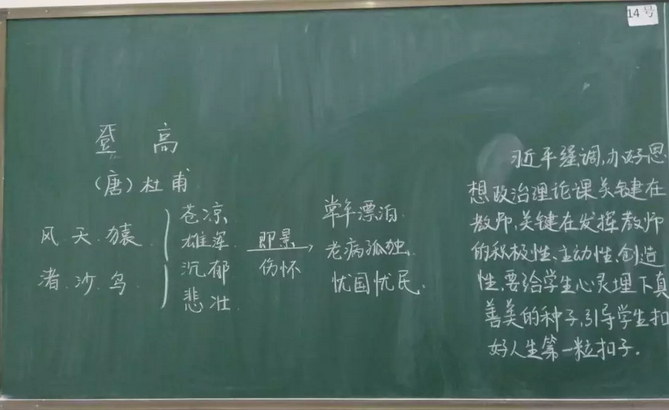 14号
登高
(唐)杜甫
风.天.猿.
渚.沙.鸟.
苍凉
雄浑
沉郁
悲壮
即景
伤怀
常年漂泊
老病孤独.
忧国忧民.
习近平强调,办好思
想政治理论课关键在
教师,关键在发挥教师
的积极性、主动性、创造
性.要给学生心灵埋下真
善美的种子,引导学生扣
好人生第一粒扣子.